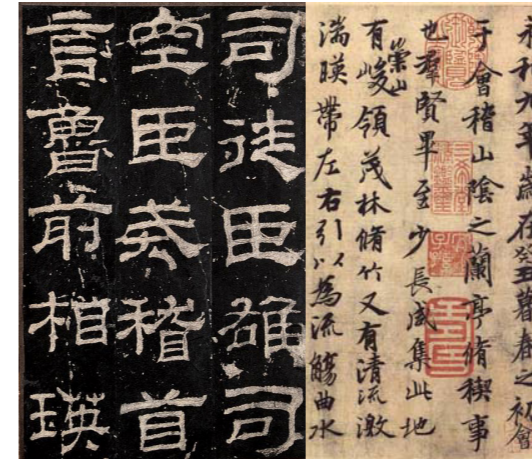 司徒臣雄司
空臣戒稽首
言魯前相瑛
永和九年歲在癸丑暮春之初會
于會稽山陰之蘭亭脩稧事
也羣賢畢至少長咸集此地
有崇山峻領茂林脩竹又有清流激
湍暎帶左右引以為流觴曲水